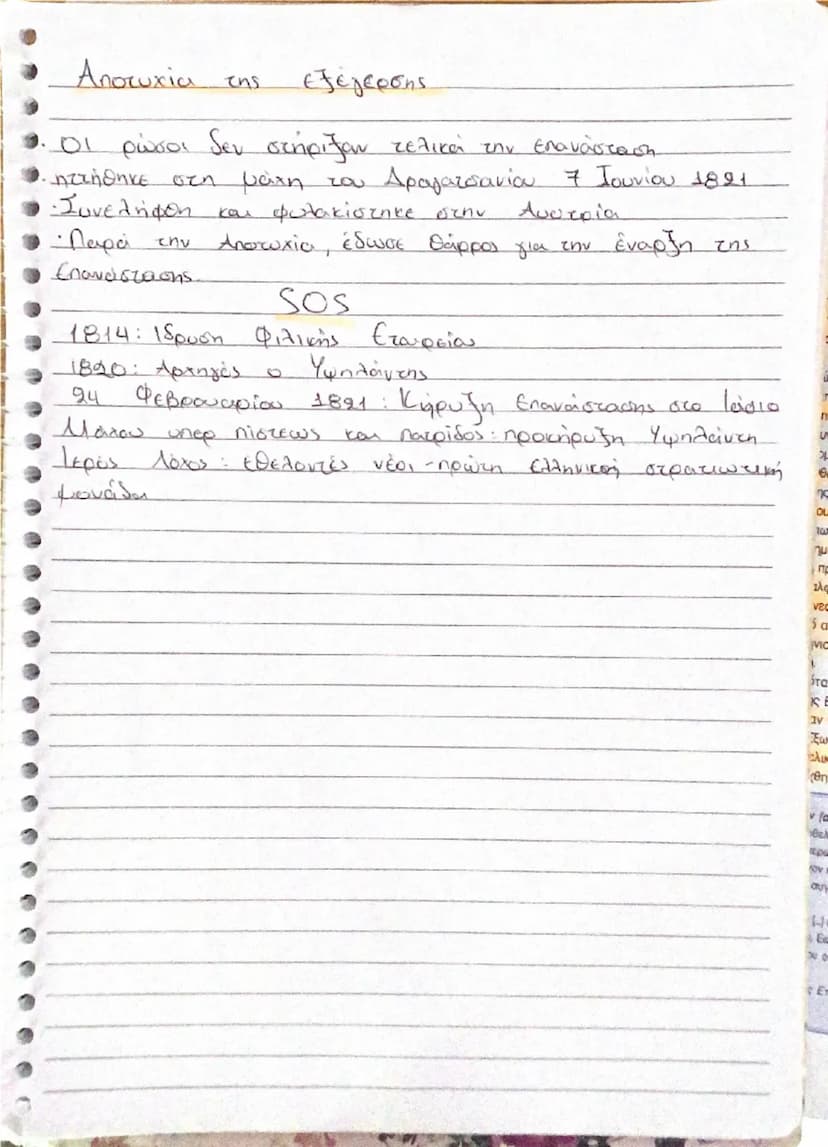 Αποτυχία της εξέγερσης
· Οι ρώσοι δεν στήριξαν τελικά την επανάσταση
· ηττήθηκε στη μάχη του Δραγατσανίου 7 Ιουνίου 1821
· Συνελήφθη και φυλακίστηκε στην Αυστρία
· Παρά την Αποτυχία, έδωσε θάρρος για την έναρξη της
Επανάστασης
SOS
1814: Ιδρυση Φιλικής Εταιρεία
1820: Αρχηγός ο Υψηλάντης
24 Φεβρουαρίου 1821: Κήρυξη Επανάστασης στο Ιάσιο
Μάχου υπερ πίστεως και πατρίδος: προκήρυξη Υψηλάντη
Ιερός Λόχος: εθελοντές νέοι - πρώτη ελληνική στρατιωτική
μονάδα